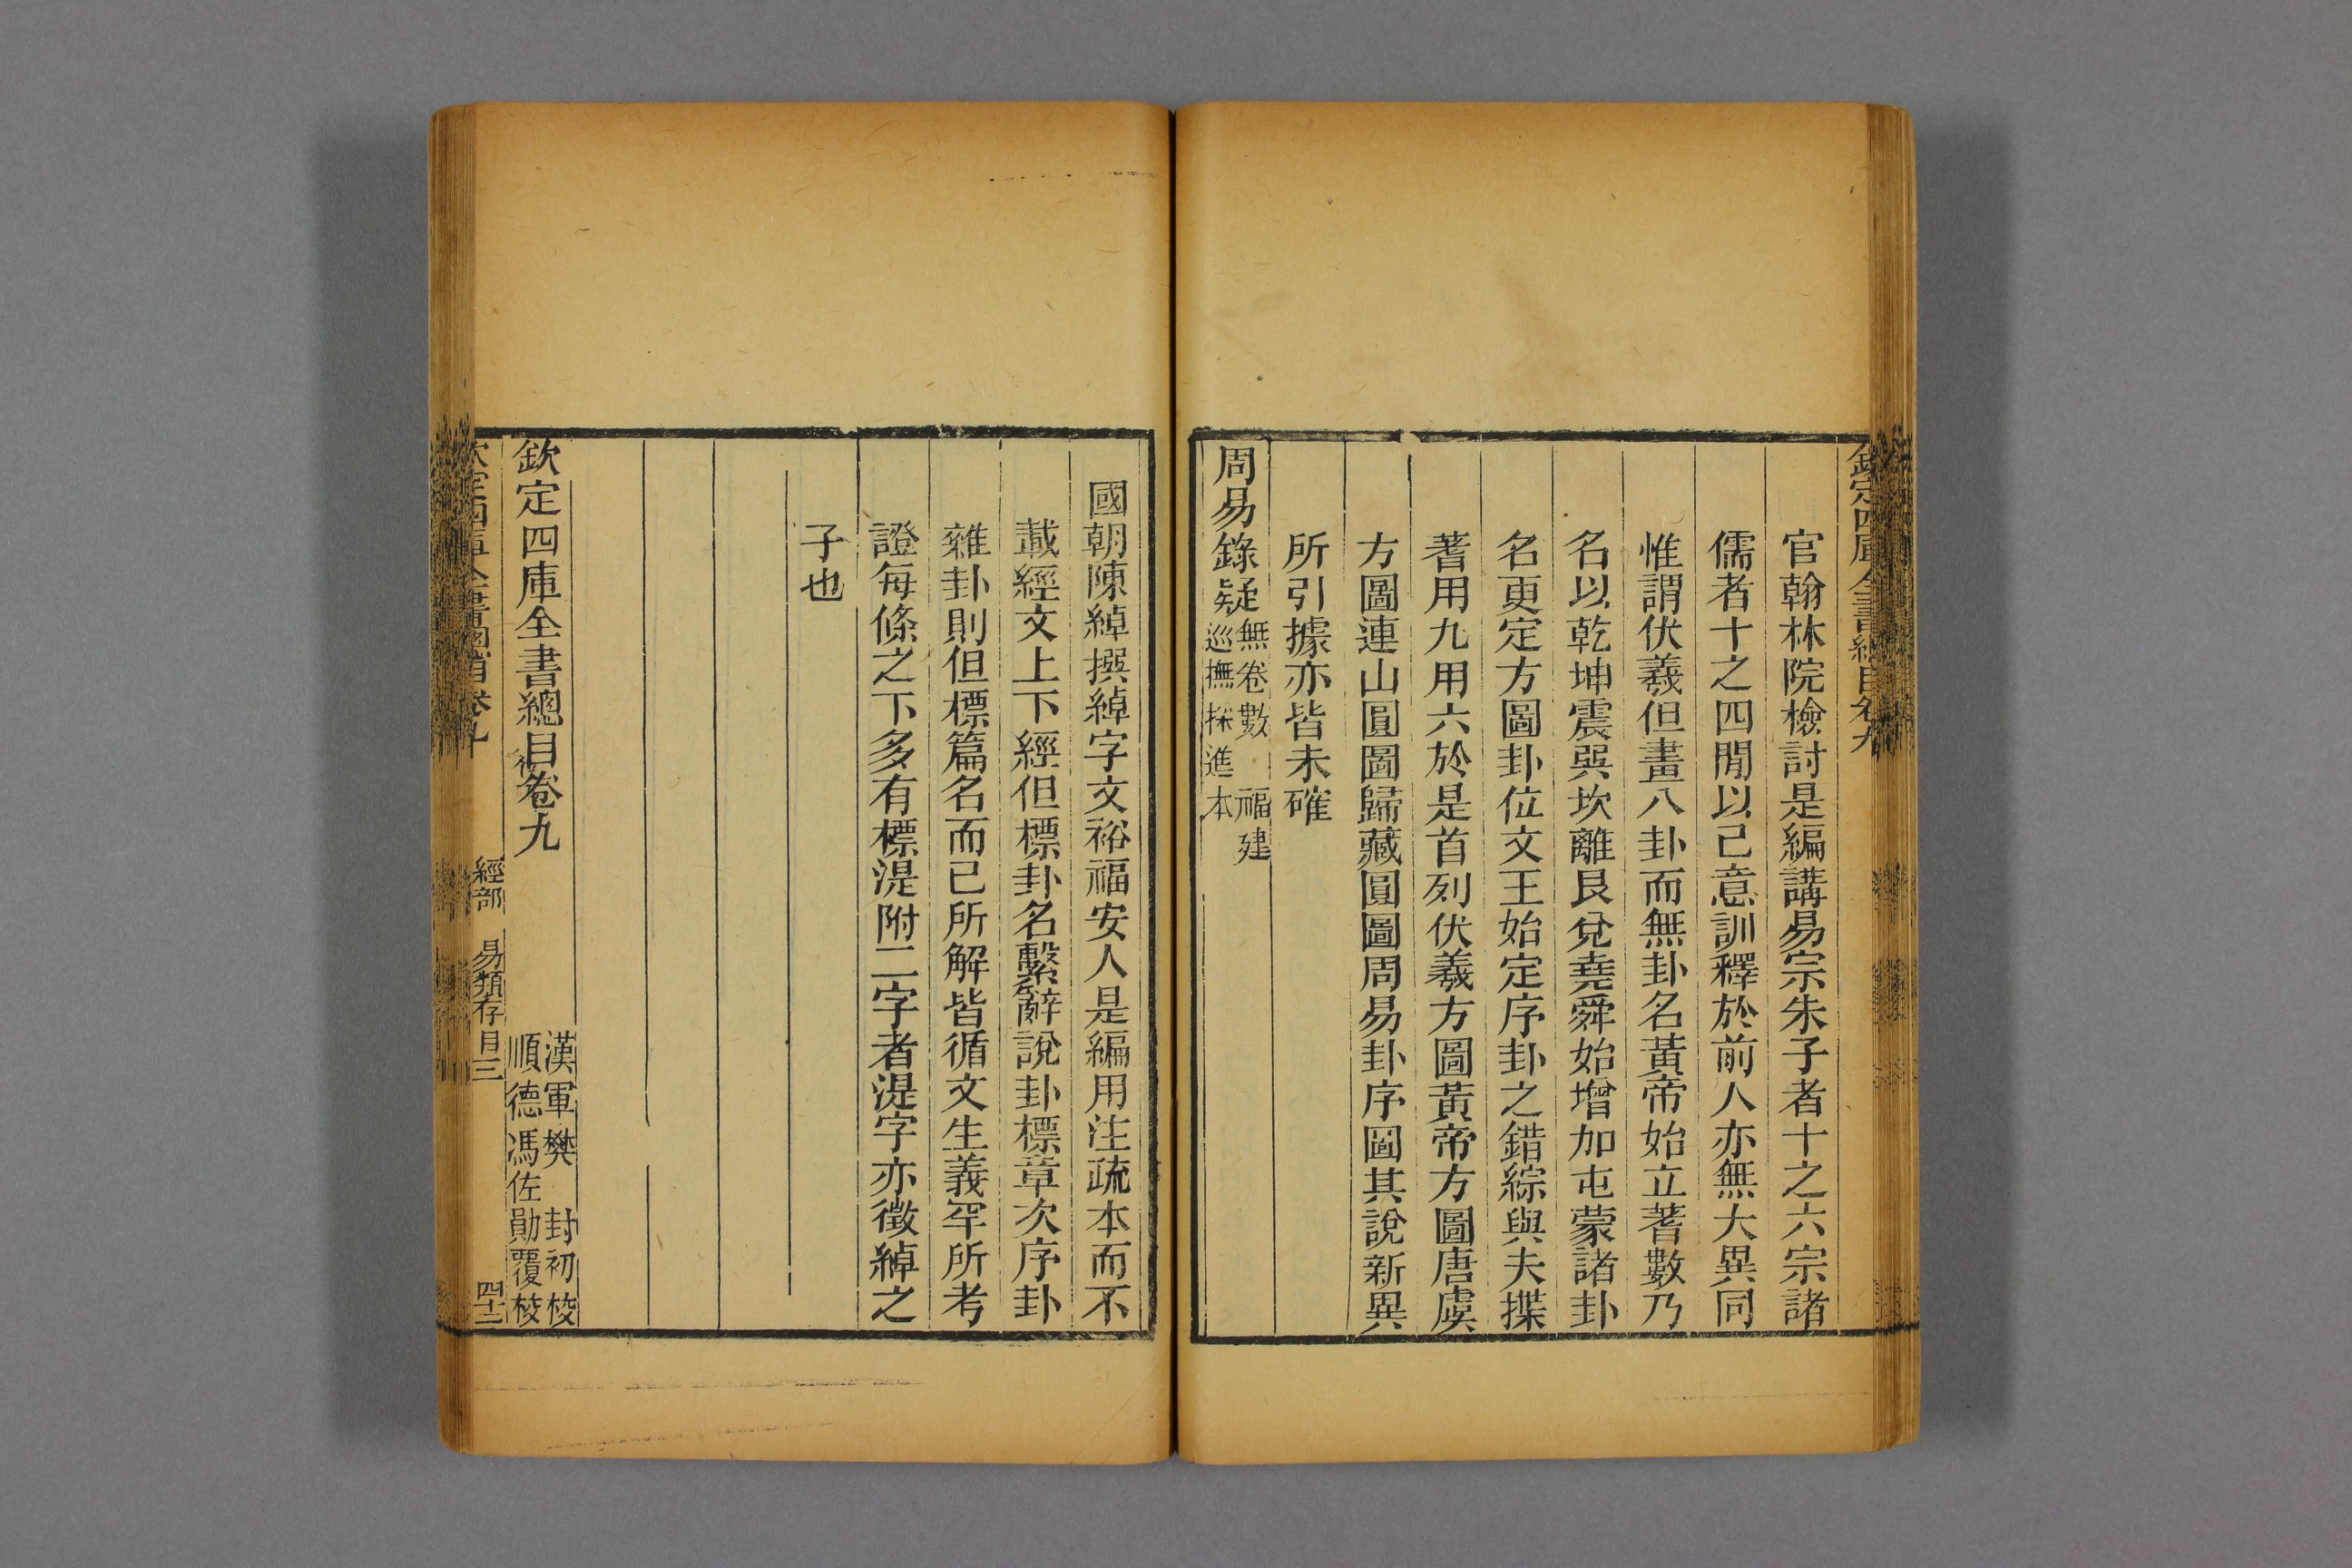 欽定四庫全書總目卷九
官翰林院檢討是編講易宗朱子者十之六宗諸
儒者十之四閒以己意訓釋於前人亦無大異同
惟謂伏羲但畫八卦而無卦名黃帝始立蓍數乃
名以乾坤震巽坎離艮兌堯舜始增加屯蒙諸卦
名更定方圖卦位文王始定序卦之錯綜與夫揲
蓍用九用六於是首列伏羲方圖黃帝方圖唐虞
方圖連山圓圖歸藏圓圖周易卦序圖其說新異
所引據亦皆未確
周易錄疑無卷數 福建
巡撫採進本
國朝陳綽撰綽字文裕福安人是編用注疏本而不
載經文上下經但標卦名繫辭說卦標章次序卦
雜卦則但標篇名而已所解皆循文生義罕所考
證每條之下多有標湜附二字者湜字亦徵綽之
子也
欽定四庫全書總目卷九
漢軍樊 封初校
順德馮佐勛覆校
欽定四庫全書總目卷九
經部 易類存目三
四十三